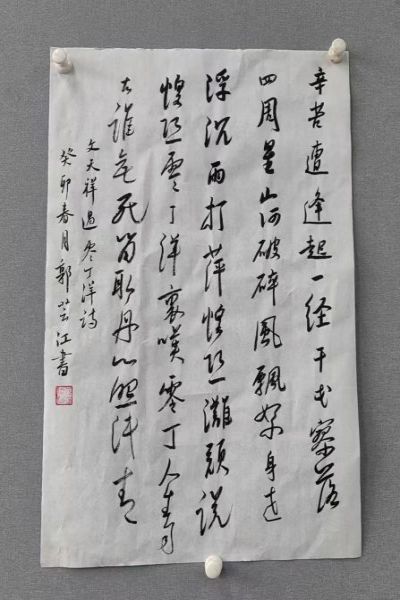 辛苦遭逢起一经干戈寥落
四周星山河破碎風飄絮身世
浮沉雨打萍惶恐灘頭说
惶恐零丁洋裏嘆零丁人生自
古誰無死留取丹心照汗青
文天祥過零丁洋诗
癸卯春月郭芸江書